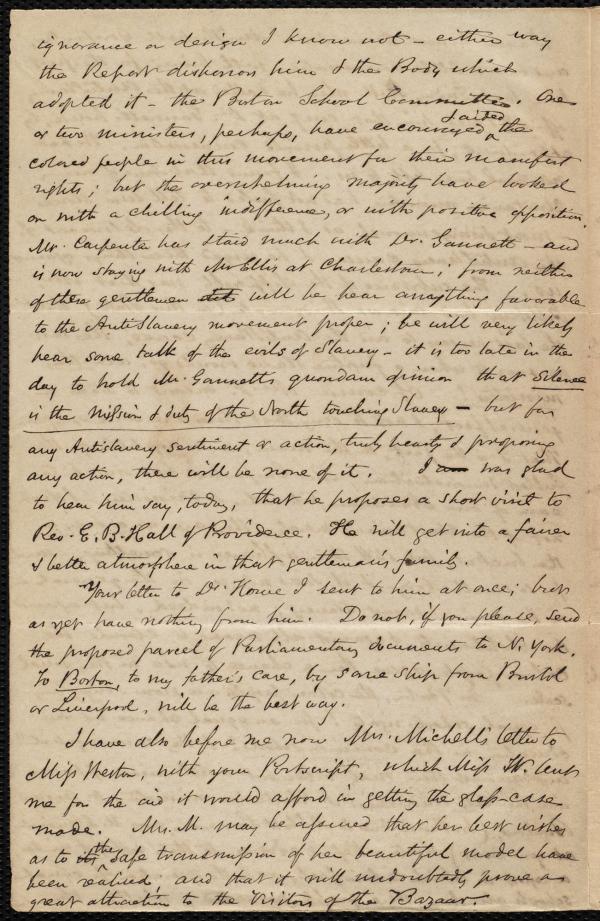 ignorance or design I know not - either way
the Report dishonors him & the Body which
adopted it - the Boston School Committee. One
or two ministers, perhaps, have encouraged & aided the
colored people in this movement for their manifest
rights; but the overwhelming majority have looked
on with a chilling indifference, or with positive opposition.
Mr. Carpenter has staid much with Dr. Gannett - and
is now staying with Mr Ellis at Charlestown; from neither
of these gentlemen will he hear anything favorable
to the AntiSlavery movement proper; he will very likely
hear some talk of the evils of Slavery - it is too late in the
day to hold Mr. Gannett's quondam opinion that silence
is the mission & duty of the North touching Slavery - but for
any Antislavery sentiment or action, truly hearty & proposing
any action, there will be none of it. I was glad
to hear him say, today, that he proposes a short visit to
Rev. E. B. Hall of Providence. He will get into a fairer
& better atmosphere in that gentleman's family.
Your letter to Dr. Howe I sent to him at once; but
as yet have nothing from him. Do not, if you please, send
the proposed parcel of Parliamentary documents to N. York.
To Boston, to my father's care, by some ship from Bristol
or Liverpool, will be the best way.
I have also before me now Mrs. Michell's letter to
Miss Weston, with your Postscript, which Miss W. lent
me for the aid it would afford in getting the glass-case
made. Mrs. M. may be assured that her best wishes
as to the safe transmission of her beautiful model have
been realized; and that it will undoubtedly prove a
great attraction to the Visitors of the Bazaar.